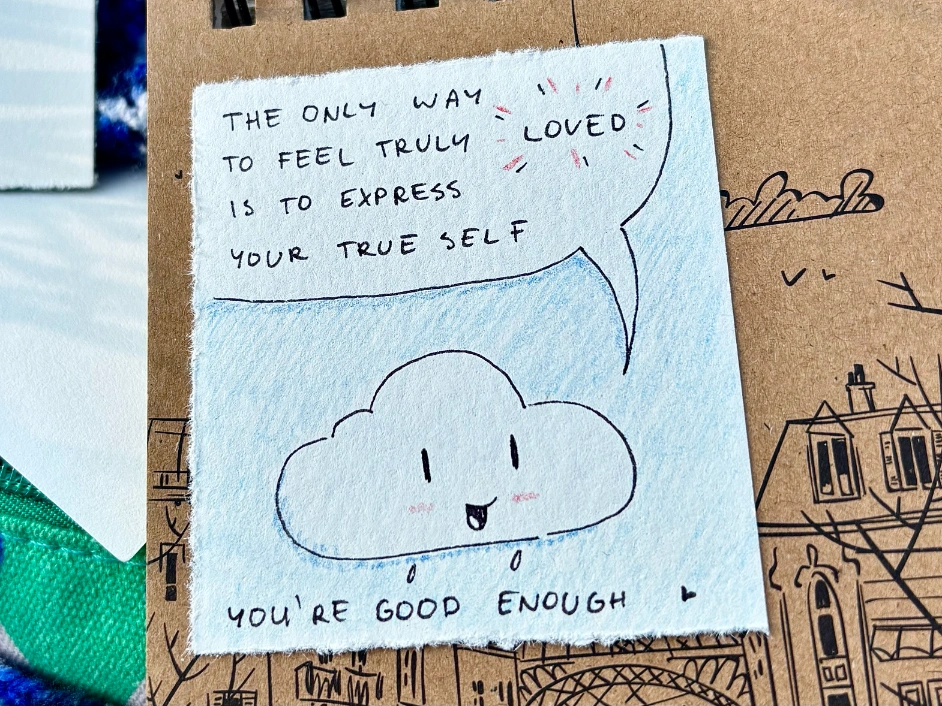 THE ONLY WAY
TO FEEL TRULY LOVED
IS TO EXPRESS
YOUR TRUE SELF
YOU'RE GOOD ENOUGH